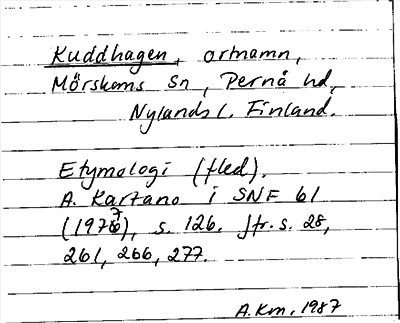 Kuddhagen, ortnamn,
Mörskoms sn, Pernå hd,
Nylands l. Finland.
Etymologi (fled).
A. Kartano i SNF 61
(1977), s. 126. Jfr. s. 28,
261, 266, 277.
A.Km, 1987